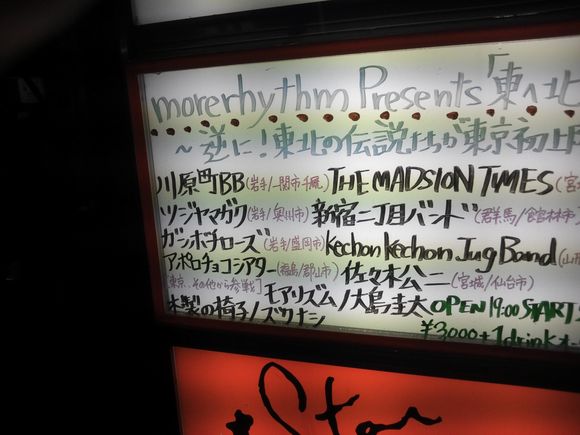 morerhythm Presents 「東へ北
～逆に！東北の伝説たちが東京初上
川原町BB (岩手/一関市千厩) THE MADSION TIMES (宮
ツジヤマガク (岩手/奥州市) 新宿二丁目バンド (群馬/館林市
ガンボチローズ (岩手/盛岡市) kechon kechon Jug Band (山形
アポロチョコシアター (福島/郡山市) 佐々木公二 (宮城/仙台市)
[東京、その他から参戦] モアリズム / 大島圭太 OPEN 19:00 START
木製の椅子 / ズクナシ ¥3000+1drink
Star